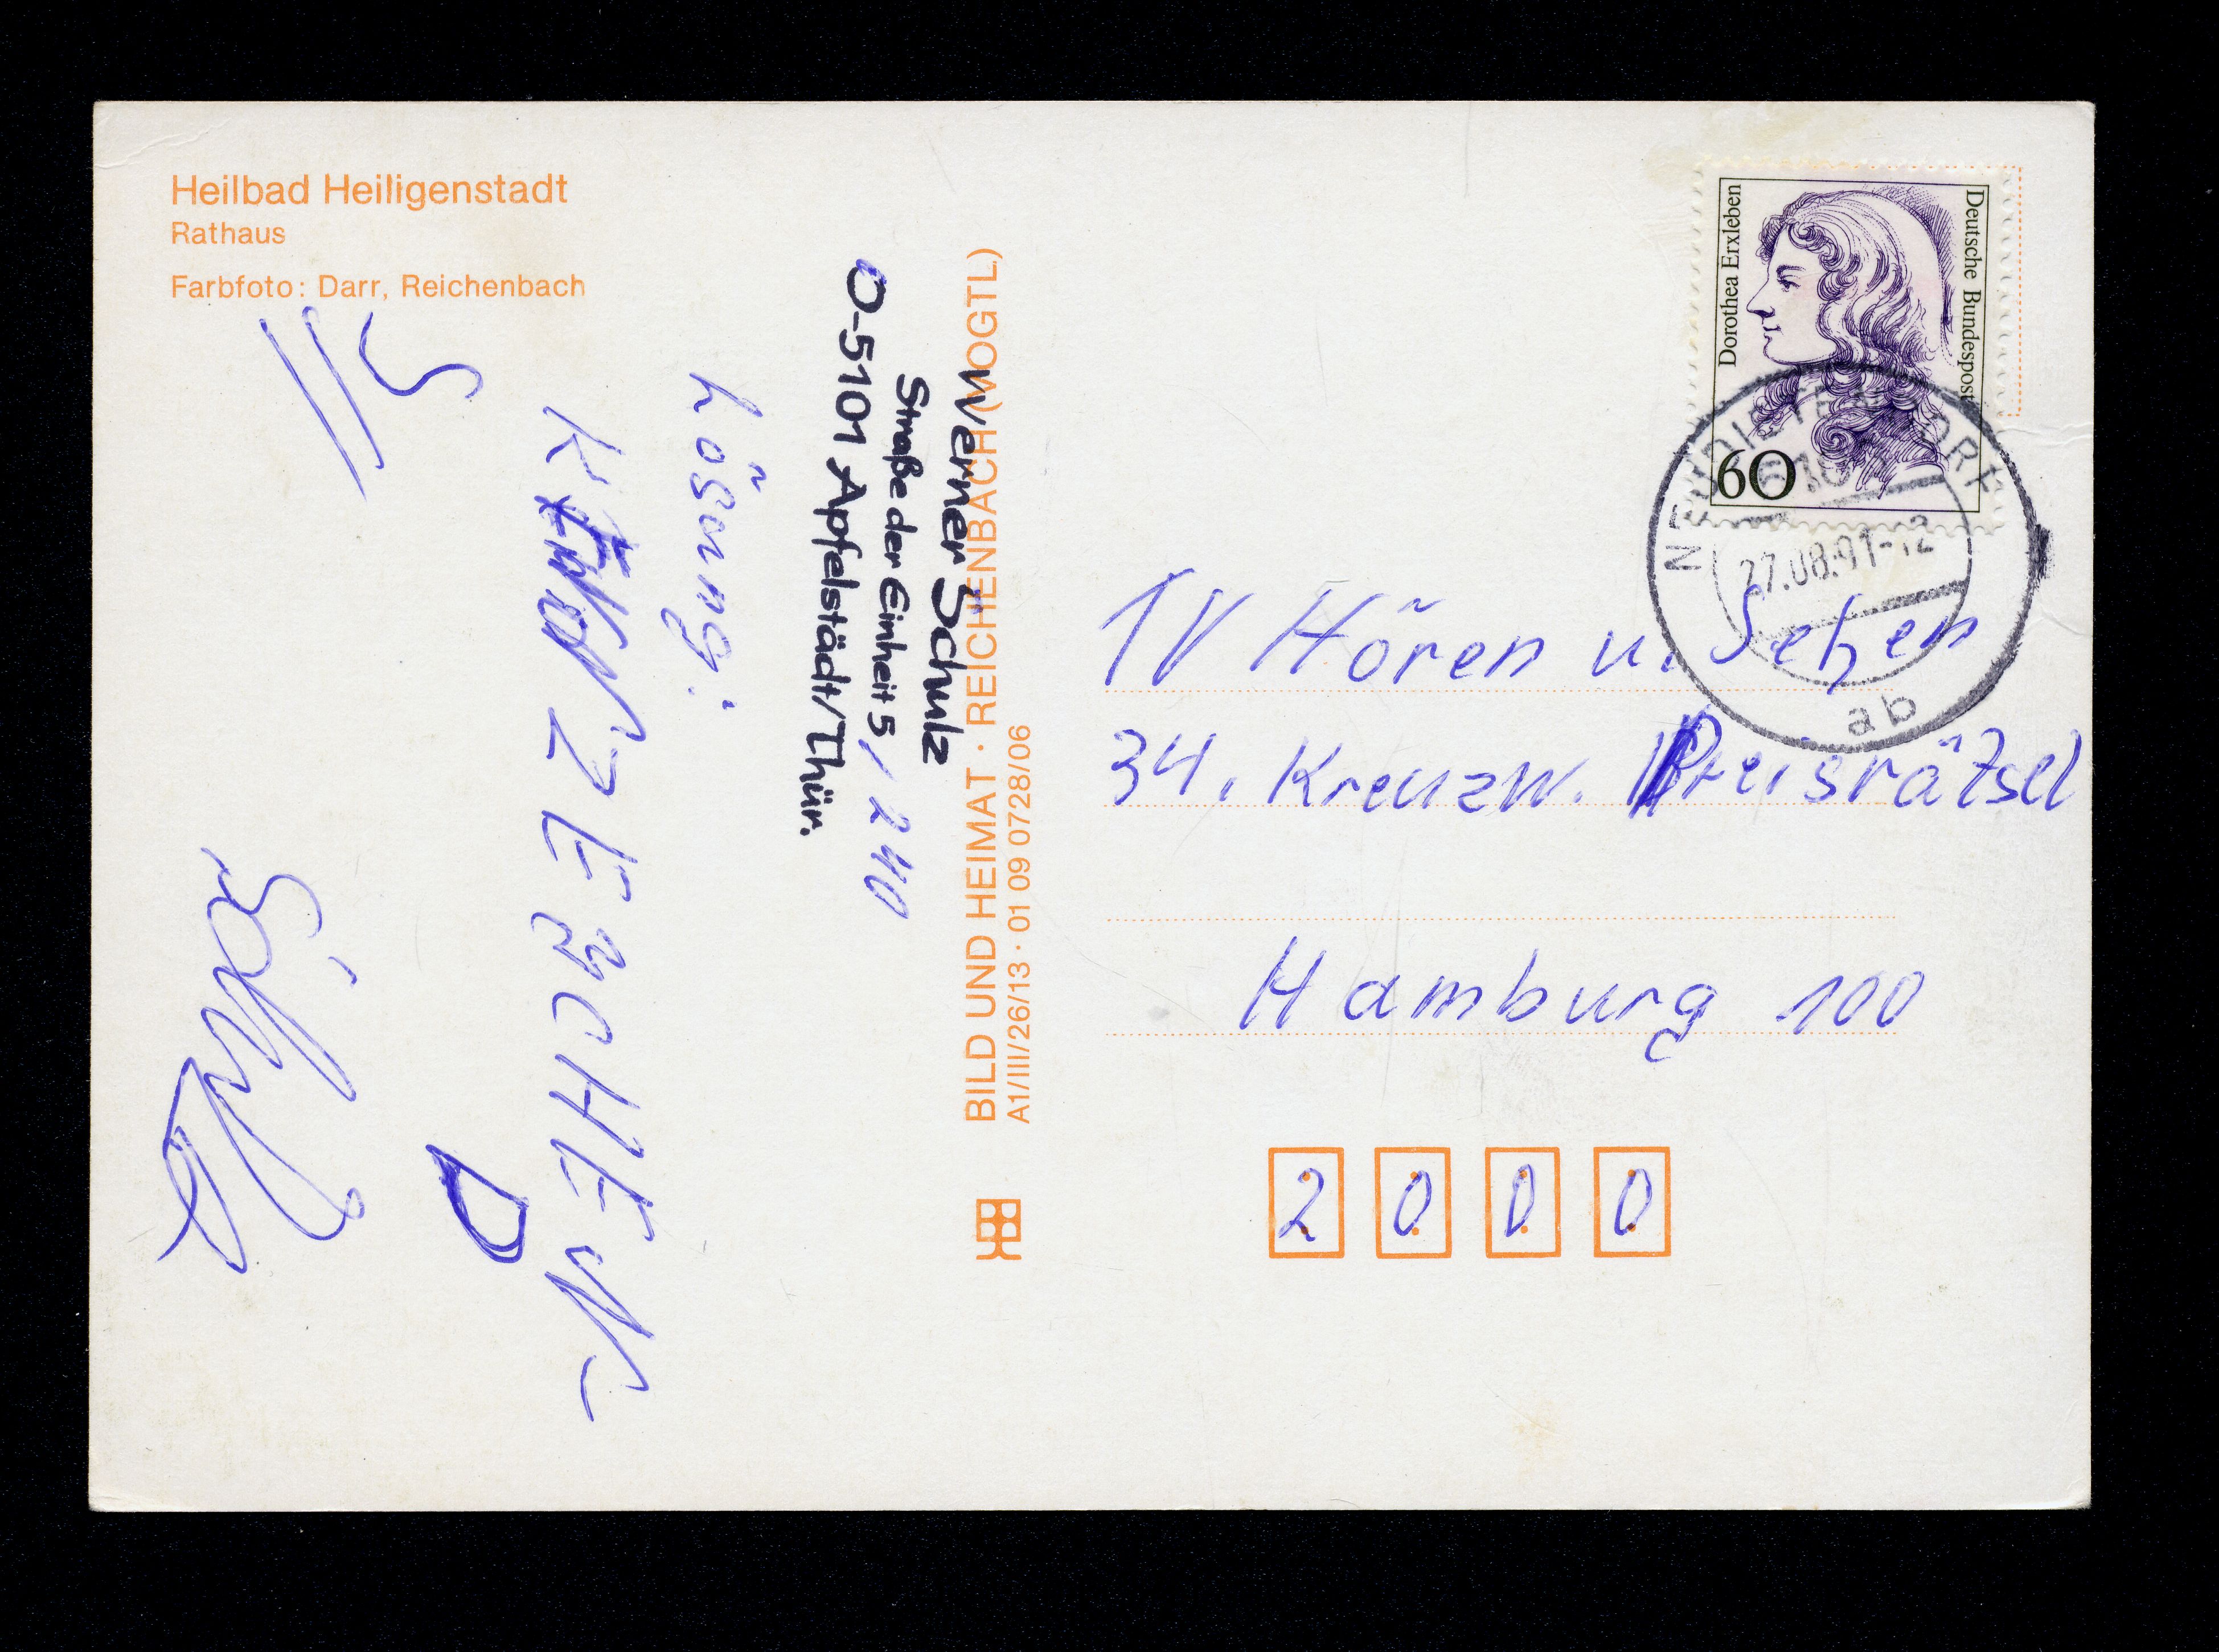 Heilbad Heiligenstadt
Rathaus
Farbfoto: Darr, Reichenbach
Werner Schulz
Straße der Einheit 5, 240
O-5101 Apfelstädt/Thür.
Lösung:
BILD UND HEIMAT · REICHENBACH (VOGTL)
A1/III/26/13 · 01 09 0728/06
Dorothea Erxleben
Deutsche Bundespost
60
NEUDIETENDORF
27.08.91-12
ab
TV Hören u. Sehen
34. Kreuzw. Preisrätsel
Hamburg 100
2000